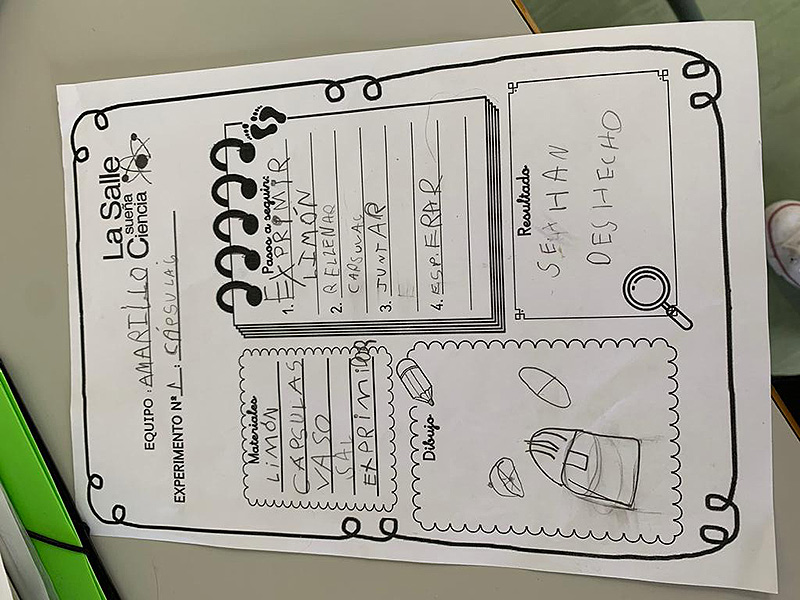 La Salle
sueña
Ciencia
EQUIPO: AMARILLO
EXPERIMENTO Nº 1: CÁPSULAS
Materiales
LIMÓN
CAPCULAS
VASO
SAL
EXPRIMIDOR
Pasos a seguir:
1. EXPRIMIR
LIMÓN
2. RELLENAR
CAPSULAS
3. JUNTAR
4. ESPERAR
Dibujo
Resultado
SE HAN
DESHECHO